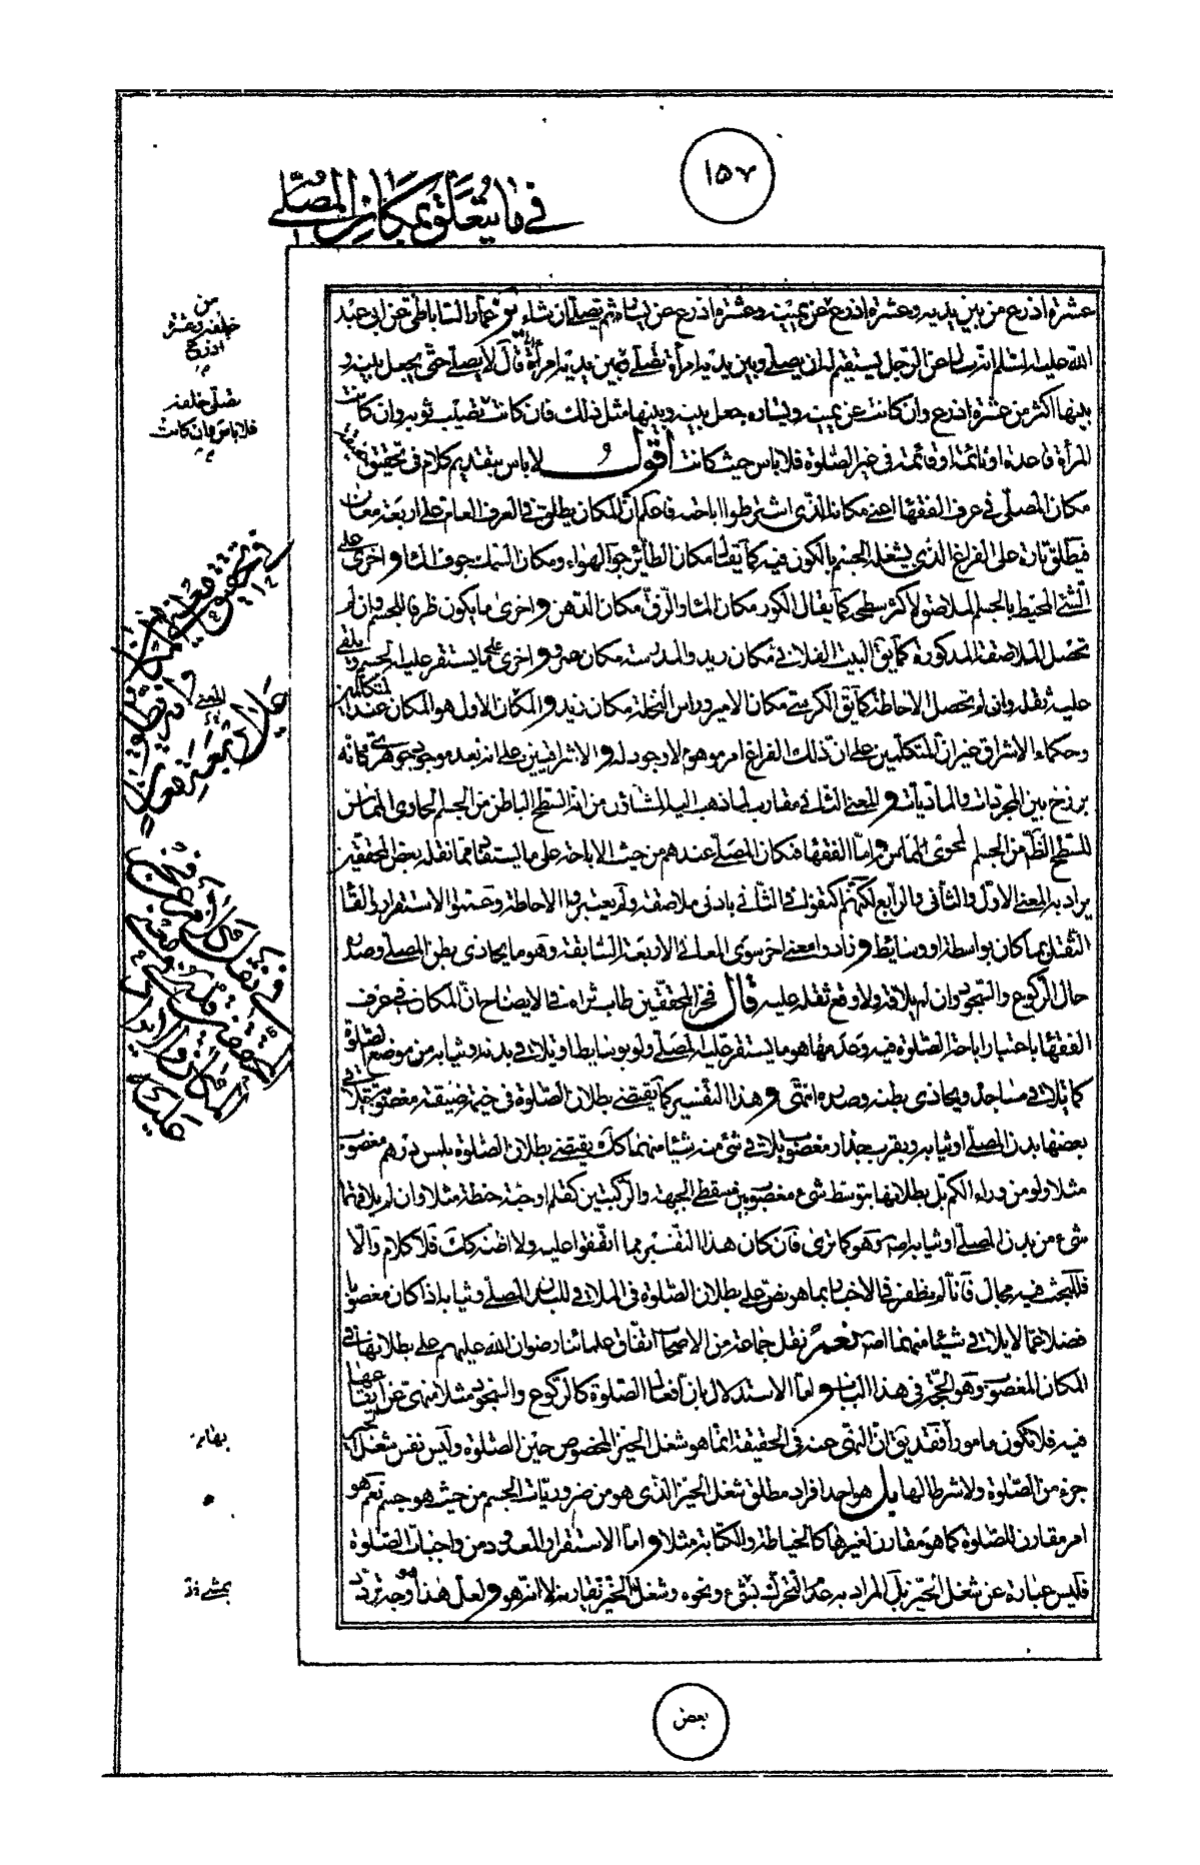 ١٥٧
في ما يتعلق بمكان المصلي
عشرة اذرع من بين يديه وعشرة اذرع عن يمينه وعشرة اذرع عن يساره ثم يصلي ان شاء يو عمار الساباطي عن ابي عبد
الله عليه السلم انه سئل عن الرجل يستقيم له ان يصلي وبين يديه امرأة تصلي قال لا يصلي حتى يجعل بينه و
بينها اكثر من عشرة اذرع وان كانت عن يمينه ويساره جعل بينه وبينها مثل ذلك فان كانت تصيب ثوبه وان كانت
المرأة قاعدة او نائمة او قائمة في غير الصلوة فلا باس حيث كانت اقول لا باس بتقديم كلام في تحقيق حقيقة
مكان المصلي في عرف الفقهاء اعني مكانه الذي اشترطوا اباحته فاعلم ان المكان يطلق في العرف العام على اربعة معان
فيطلق تارة على الفراغ الذي يشغله الجسم بالكون فيه كما يقال مكان الطائر جو الهواء ومكان السمك جوف الماء و اخرى على
الشئ المحيط بالجسم الملاصق لاكثر سطحه كما يقال الكوز مكان الماء والزق مكان الدهن و اخرى ما يكون ظرفا للجسم وان لم
تحصل الملاصقة المذكورة كما يق البيت الفلاني مكان زيد والمدرسة مكان عمرو و اخرى على ما يستقر عليه الجسم ويلقى
عليه ثقله وان لم تحصل الاحاطة كما يق الكرسي مكان الامير وراس النخلة مكان زيد و المكان الاول هو المكان عند المتكلمين
وحكماء الاشراق غير ان المتكلمين على ان ذلك الفراغ امر موهوم لا وجود له و الاشراقيين على انه بعد موجود جوهري كانه
برزخ بين المجردات والماديات و المعنى الثاني مقارب لما ذهب اليه المشاؤن من انه السطح الباطن من الجسم الحاوي المماس
للسطح الظاهر من الجسم المحوي المماس و اما الفقهاء فمكان المصلي عندهم من حيث الاباحة على ما يستفاد مما نقله بعض المحققين
يراد به المعنى الاول والثاني والرابع لكنهم اكتفوا في الثاني بادنى ملاصقة ولم يعتبروا الاحاطة وعمموا الاستقرار والقاء
الثقل بما كان بواسطة او وسائط و زادوا معنى اخر سوى المعاني الاربعة السابقة وهو ما يحاذي بطن المصلي وصدره
حال الركوع والسجود وان لم يلاقه ولا وقع ثقله عليه قال فخر المحققين طاب ثراه في الايضاح ان المكان في عرف
الفقهاء باعتبار اباحة الصلوة فيه وعدمها هو ما يستقر عليه المصلي ولو بوسائط وما يلاقي بدنه وثيابه من موضع الصلوة
كما يلاقي مساجده ويحاذي بطنه وصدره انتهى و هذا التفسير كما يقتضي بطلان الصلوة في خيمة ضيقة مغصوبة يلاقي
بعضها بدن المصلي او ثيابه وبقرب جدار مغصوب يلاقي شئ منه شيئا منهما كك يقتضي بطلان الصلوة بلبس درهم مغصوب
مثلا ولو من وراء الكم بل بطلانها بتوسط شئ مغصوب بين مسقطي الجبهة والركبتين كقلم او حبة حنطة مثلا وان لم يلاقها
شئ من بدن المصلي او ثيابه اصلا وهو كما ترى فان كان هذا التفسير مما اتفقوا عليه ولا اظنه كك فلا كلام والا
فللبحث فيه مجال فانا لم نظفر في الاخبار بما هو نص على بطلان الصلوة في الملاقي للباس المصلي وثيابه اذا كان مغصوبا
فضلا عما لا يلاقي شيئا منهما اصلا نعم نقل جماعة من الاصحاب اتفاق علمائنا رضوان الله عليهم على بطلانها في
المكان المغصوب وهو الحجة في هذا الباب و اما الاستدلال بان افعال الصلوة كالركوع والسجود مثلا منهي عن ايقاعها
فيه فلا تكون مامورا بها فقد يق ان النهي عنه في الحقيقة انما هو شغل الحيز المخصوص حين الصلوة وليس نفس شغل الحيز
جزء من الصلوة ولا شرطا لها بل هو احد افراد مطلق شغل الحيز الذي هو من ضروريات الجسم من حيث هو جسم نعم هو
امر مقارن للصلوة كما هو مقارن لغيرها كالخياطة والكتابة مثلا و اما الاستقرار المعدود من واجبات الصلوة
فليس عبارة عن شغل الحيز بل المراد به عدم التحرك بمشي ونحوه وشغل الحيز تقارنه لا انه هو و لعل هذا هو وجه تردد
من
خلفه وعشرة
اذرع
تصلي خلفه
فلا باس وان كانت
المعنى
بها
بعض